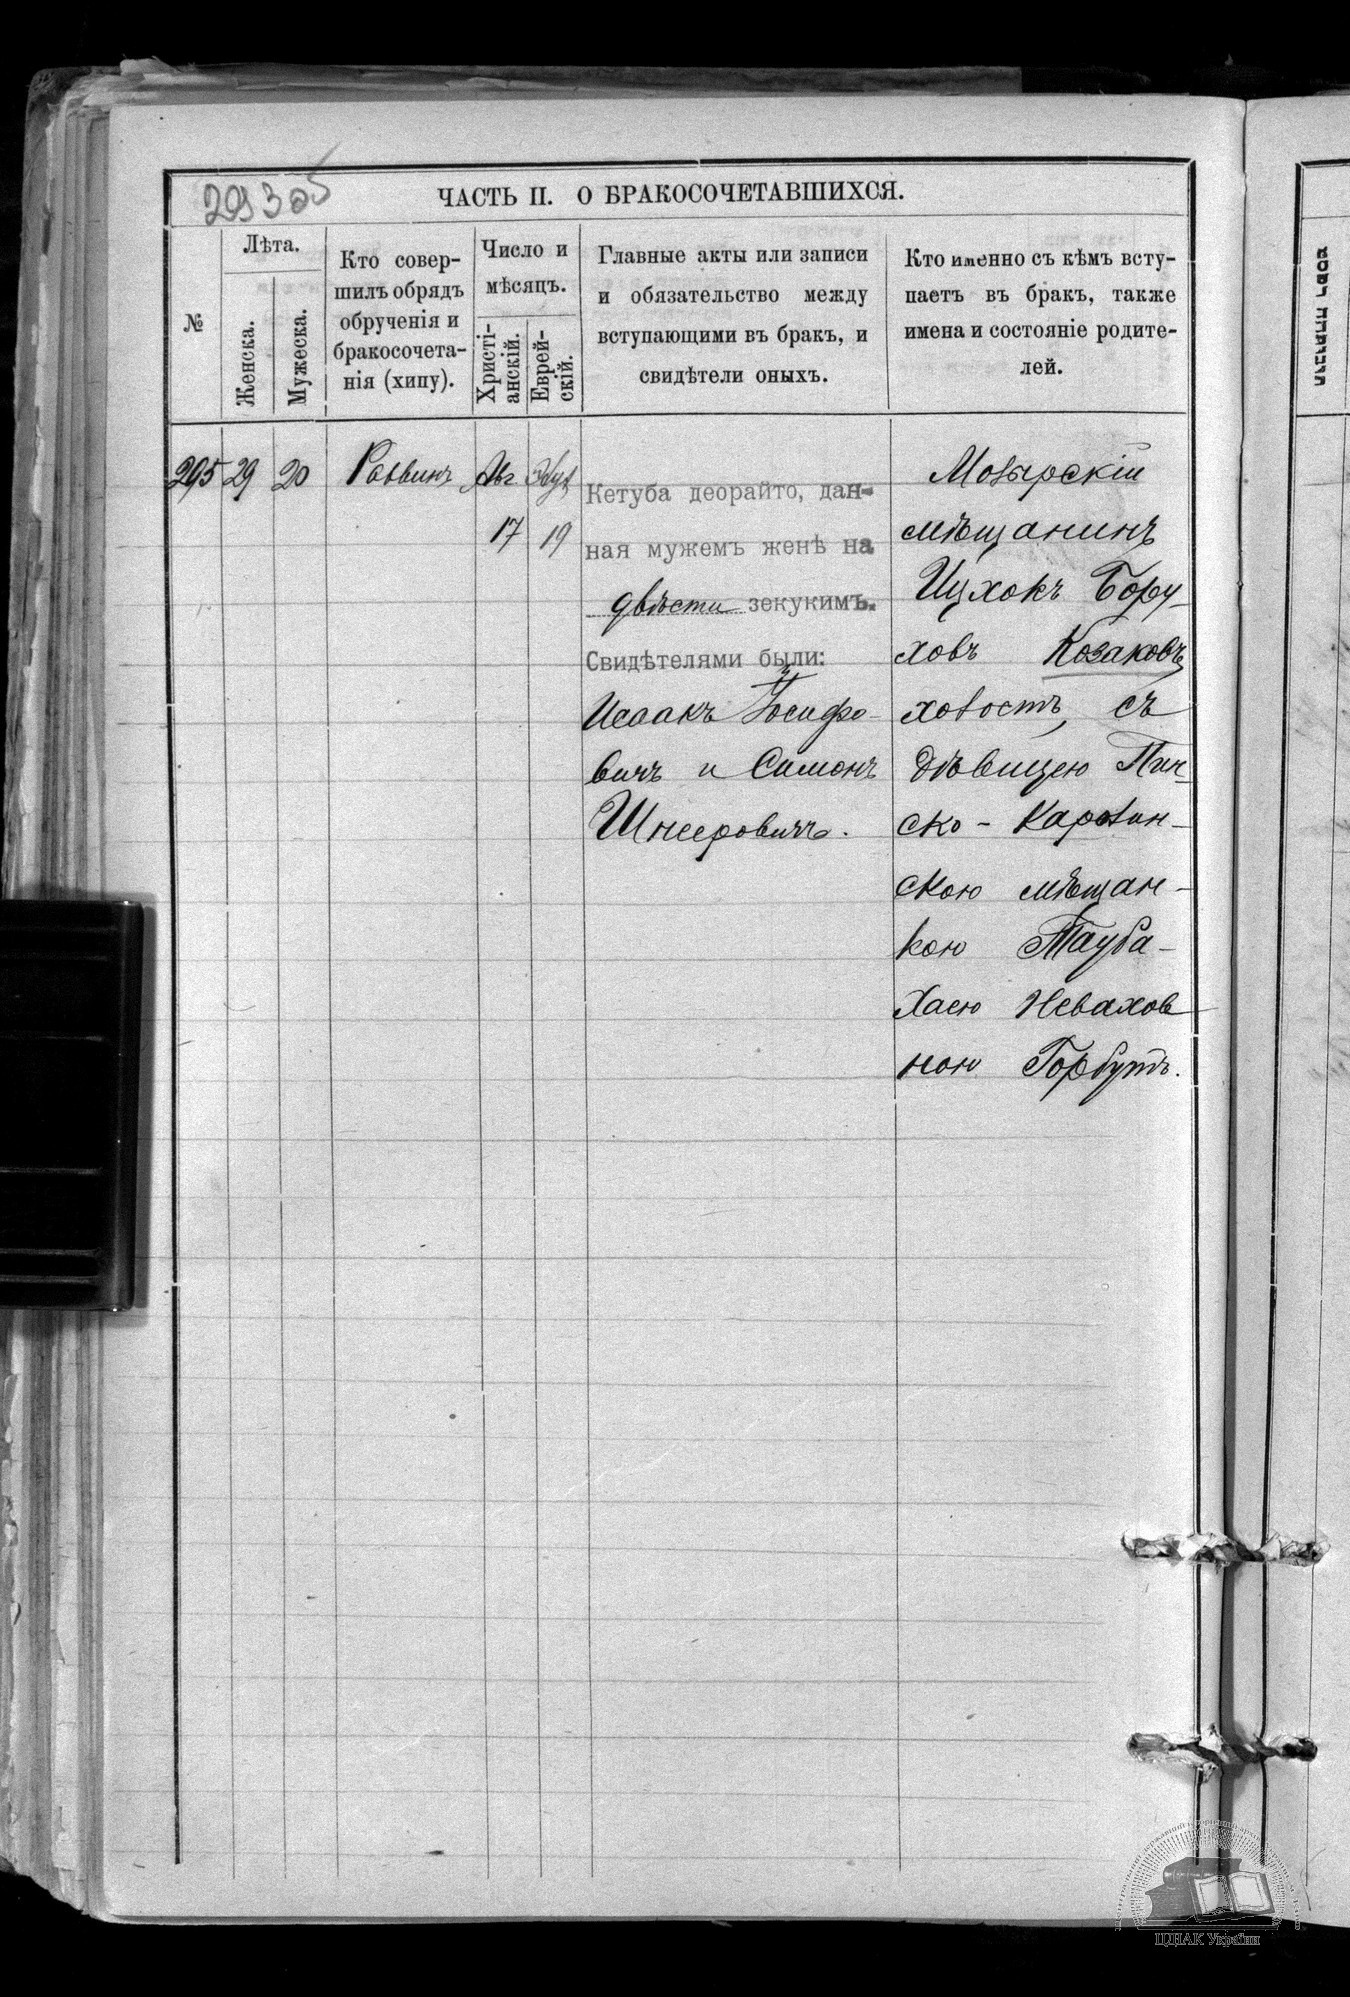 293 об
ЧАСТЬ II. О БРАКОСОЧЕТАВШИХСЯ.
№
Лѣта.
Женска.
Мужеска.
Кто совер-
шилъ обрядъ
обрученія и
бракосочета-
нія (хипу).
Число и
мѣсяцъ.
Христі-
анскій.
Еврей-
скій.
Главные акты или записи
и обязательство между
вступающими въ бракъ, и
свидѣтели оныхъ.
Кто именно съ кѣмъ всту-
паетъ въ бракъ, также
имена и состояніе родите-
лей.
295 29 20 Раввинъ Авг
17 19
Кетуба деорайто, дан-
ная мужемъ женѣ на
двѣсти зекукимъ.
Свидѣтелями были:
Исаакъ Іосифо-
вичъ и Симонъ
Шнееровичъ.
Мозырскій
мѣщанинъ
Ицхокъ Бору-
ховъ Козаковъ
холостъ, съ
дѣвицею Пин-
ско-Каролин-
скою мѣщан-
кою Тауба-
Хаею Невахов
ною Горбутъ.
ЦДІАК України